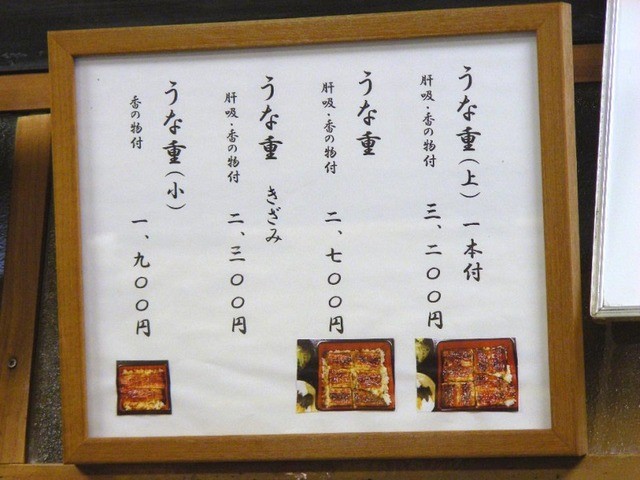 うな重（上）一本付
肝吸・香の物付
三、二〇〇円
うな重
肝吸・香の物付
二、七〇〇円
うな重 きざみ
肝吸・香の物付
二、三〇〇円
うな重（小）
香の物付
一、九〇〇円